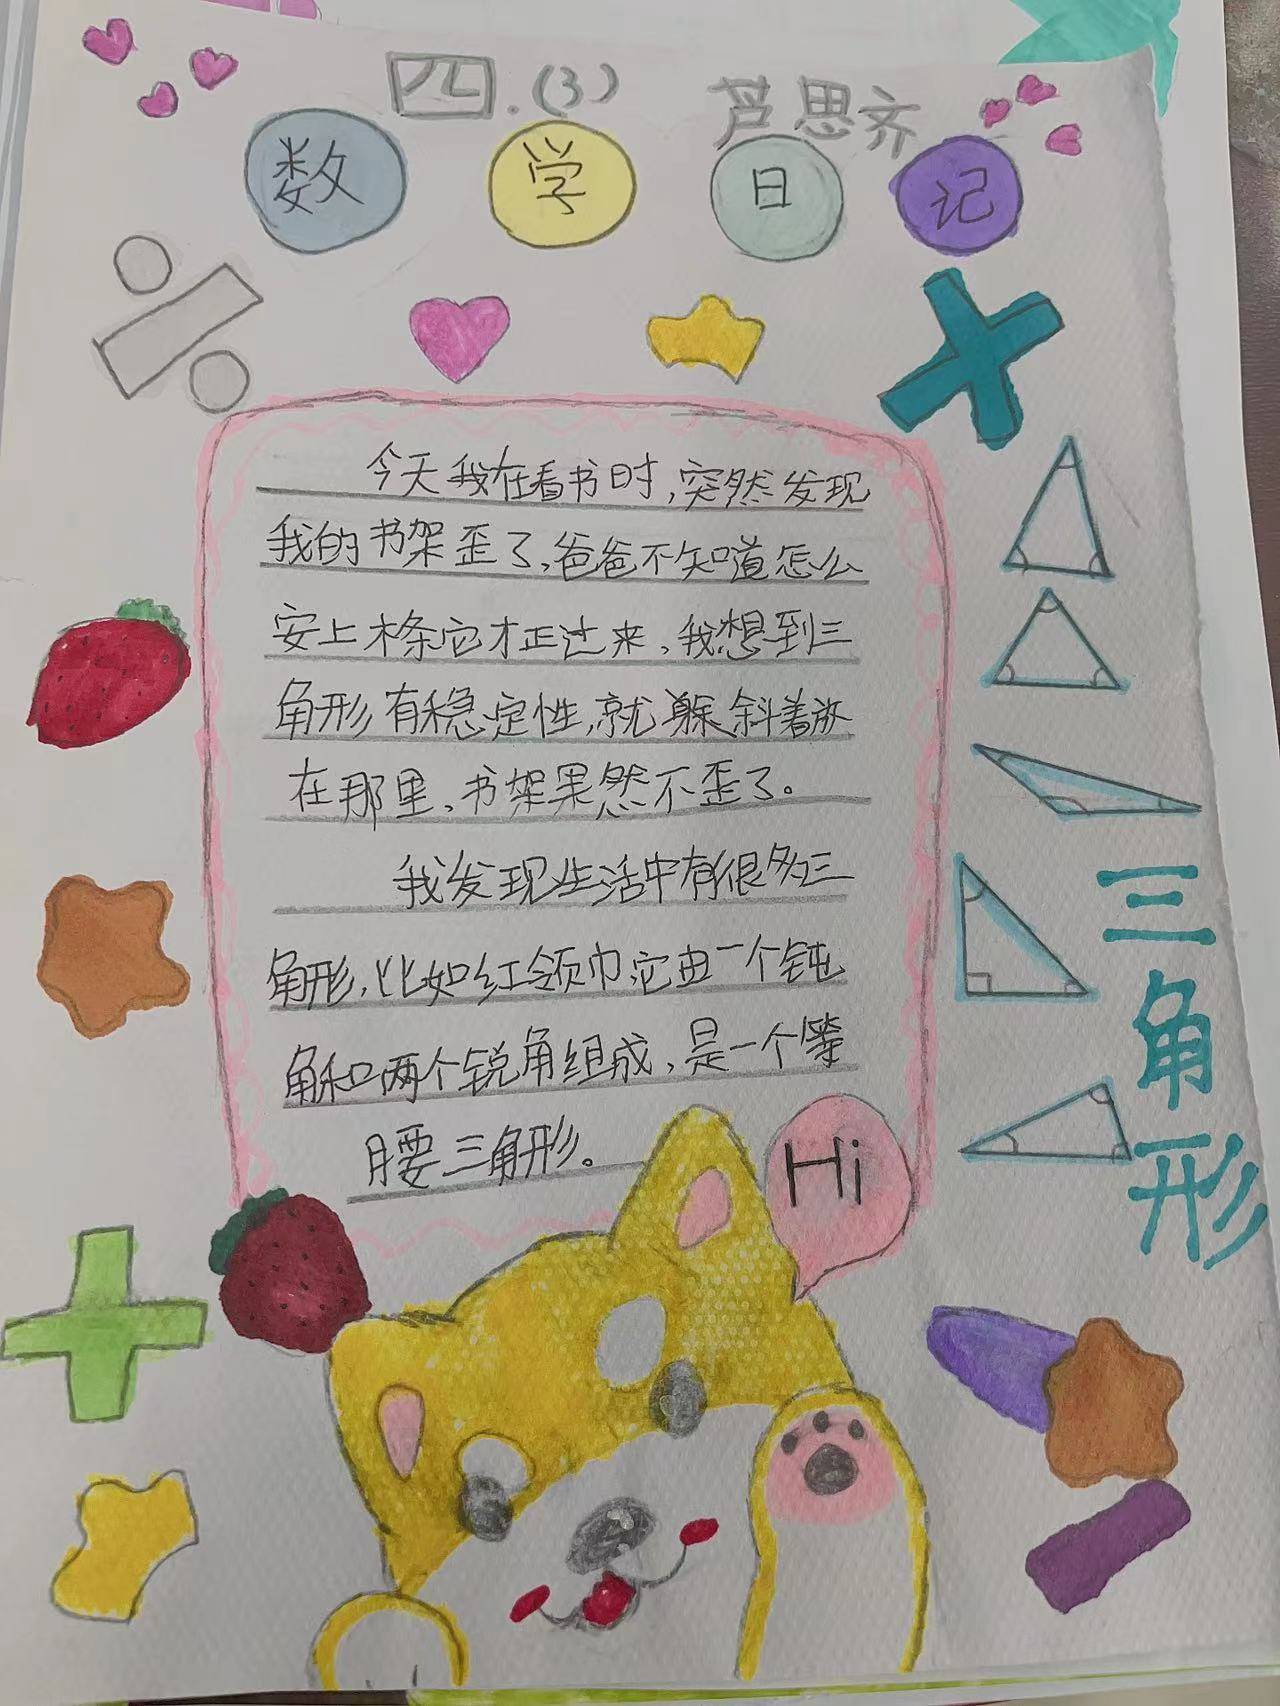 四.(3) 芦思齐
数学日记
今天我在看书时,突然发现
我的书架歪了,爸爸不知道怎么
安上木条它才正过来,我想到三
角形有稳定性,就躲斜着放
在那里,书架果然不歪了。
我发现生活中有很多三
角形,比如红领巾它由一个钝
角和两个锐角组成,是一个等
腰三角形。
Hi
三角形